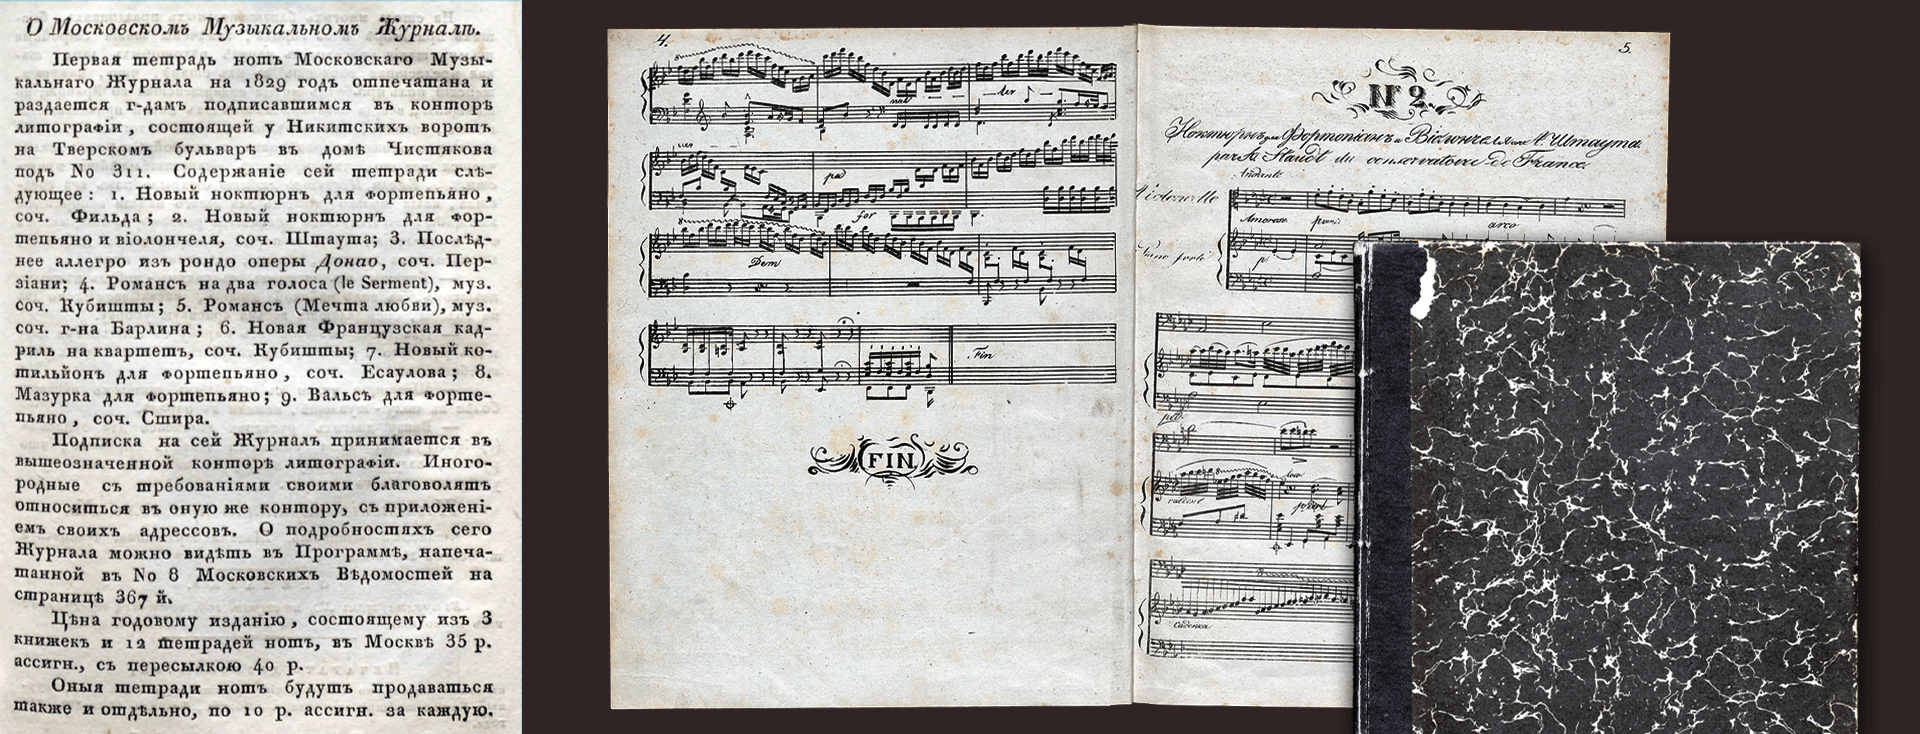 О Московскомъ Музыкальномъ Журналѣ.
Первая тетрадь нотъ Московскаго Музы-
кальнаго Журнала на 1829 годъ отпечатана и
раздается г-дамъ подписавшимся въ конторѣ
литографіи, состоящей у Никитскихъ воротъ
на Тверскомъ бульварѣ въ домѣ Чистякова
подъ No 311. Содержаніе сей тетради слѣ-
дующее: 1. Новый ноктюрнъ для фортепьяно,
соч. Фильда; 2. Новый ноктюрнъ для фор-
тепьяно и віолончеля, соч. Штаута; 3. Послѣд-
нее аллегро изъ рондо оперы Донао, соч. Пер-
зіани; 4. Романсъ на два голоса (le Serment), муз.
соч. Кубишты; 5. Романсъ (Мечта любви), муз.
соч. г-на Барлина; 6. Новая Французская кад-
риль на квартетъ, соч. Кубишты; 7. Новый ко-
тильйонъ для фортепьяно, соч. Есаулова; 8.
Мазурка для фортепьяно; 9. Вальсъ для форте-
пьяно, соч. Стира.
Подписка на сей Журналъ принимается въ
вышеозначенной конторѣ литографіи. Иного-
родные съ требованіями своими благоволятъ
относиться въ оную же контору, съ приложені-
емъ своихъ адрессовъ. О подробностяхъ сего
Журнала можно видѣть въ Программѣ, напеча-
танной въ No 8 Московскихъ Вѣдомостей на
страницѣ 367 й.
Цѣна годовому изданію, состоящему изъ 3
книжекъ и 12 тетрадей нотъ, въ Москвѣ 35 р.
ассигн., съ пересылкою 40 р.
Оныя тетради нотъ будутъ продаваться
также и отдѣльно, по 10 р. ассигн. за каждую.
4.
8
for
8
Dem
Fin
FIN
5.
N 2.
Ноктюрнъ для Фортопіанъ и Віолончеля соч. А. Штаута
par A. Staudt du conservatoire de France.
Andante
Violoncelle
Amoroso
arco
Piano forte
p
Cadenza